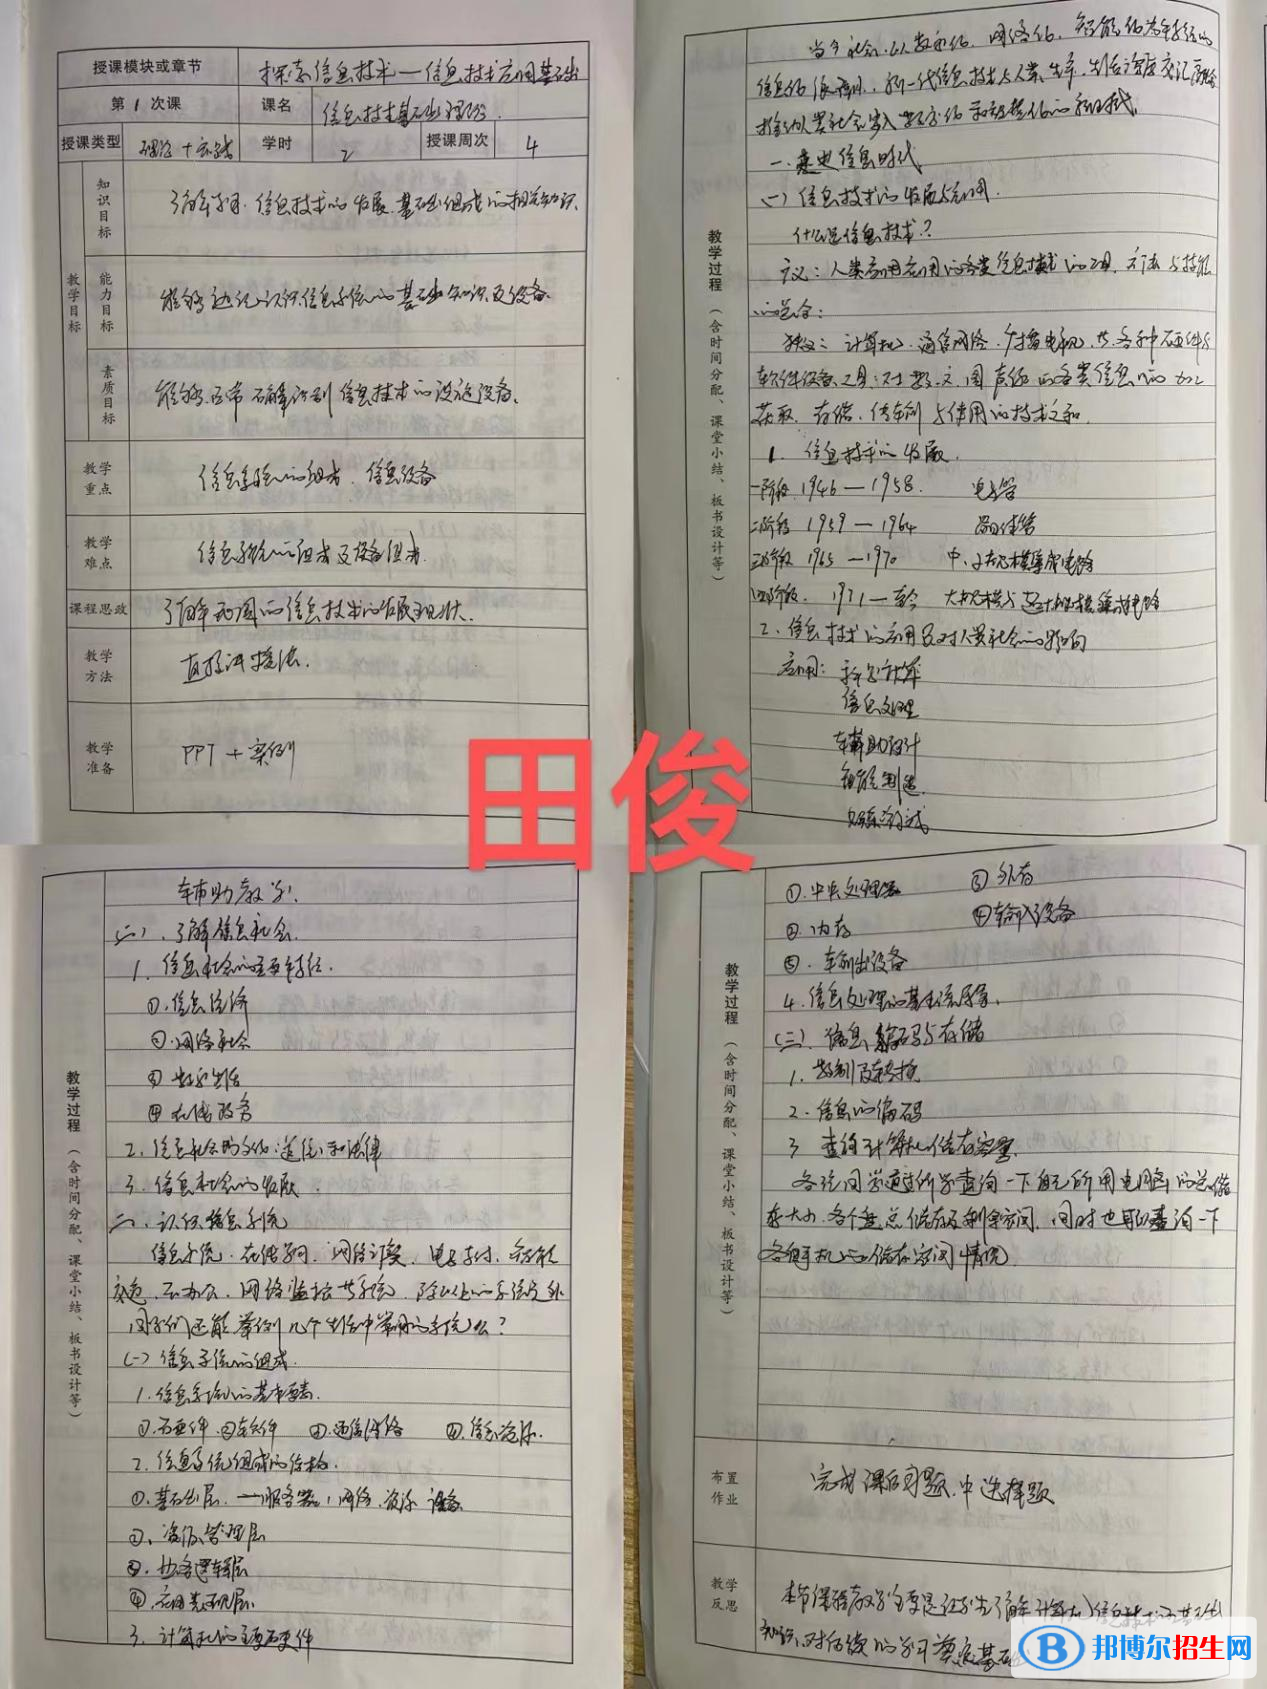 授课模块或章节 探索信息技术—信息技术应用基础
第 1 次课 课名 信息技术基础理论
授课类型 理论+实践 学时 2 授课周次 4
教学目标
知识目标 了解学习信息技术的发展、基础组成的相关知识.
能力目标 能够 认识信息系统的基础知识及设备.
素质目标 能够正常 识别信息技术的设施设备.
教学重点 信息系统的组成、信息设备
教学难点 信息系统的组成及设备组成.
课程思政 了解我国的信息技术的发展现状.
教学方法 直接讲授法.
教学准备 PPT + 案例
田俊
教学过程(含时间分配、课堂小结、板书设计等)
当今社会,以数字化、网络化、智能化为特征的
信息化浪潮 ,新一代信息技术与人类生产、生活深度交汇融合
推动人类社会步入数字化和 的新时代.
一、走进信息时代
(一)信息技术的发展与应用.
什么是信息技术?
广义:人类 应用的各类信息技术的 工具、方法与技能
的总合:
狭义:计算机、通信网络、广播电视等各种硬件与
软件设备工具:对数、文、图、声、像的各类信息的加工
获取、存储、传输与使用的技术之和.
1. 信息技术的发展.
一阶段 1946—1958. 电子管
二阶段 1959—1964 晶体管
三阶段 1965—1970 中、小规模集成电路
四阶段. 1971—至今 大规模与超大规模集成电路
2. 信息技术的应用及对人类社会的影响
应用: 科学计算
信息处理
辅助设计
智能制造
教学过程(含时间分配、课堂小结、板书设计等)
辅助教学.
(二)、了解信息社会.
1. 信息社会的主要特征.
①.信息经济
②.网络社会
③ 数字生活
④ 在线政务
2. 信息社会的文化、道德和法律
3. 信息社会的发展.
二、认识信息系统
信息系统:在线学习、网络订票、电子支付、智能
交通、云办公、网络监控等系统,除以上的系统之外
同学们还能举例几个生活中常用的系统么?
(一)信息系统的组成.
1.信息系统的基本要素.
①.硬件 ②软件 ③.通信网络 ④.信息资源.
2. 信息系统组成的结构.
①.基础层.—服务器、网络、资源 设备
②、资源管理层
③.业务逻辑层
④.应用表现层.
3. 计算机的主要硬件
教学过程(含时间分配、课堂小结、板书设计等)
①.中央处理器 ③外存
②.内存 ④输入设备
⑤.输出设备
4.信息处理的基本流程.
(三).信息编码与存储
1. 数制及转换
2. 信息的编码
3 查询计算机储存容量.
各位同学通过所学查询一下自己所用电脑的总储
存大小、各个盘总储存及剩余空间,同时也可以查询一下
各自手机的储存空间情况
布置作业 完成课后习题中选择题
教学反思 本节课程教学主要是让学生了解计算机信息技术的基础
知识,对后续的学习奠定基础.
邦博尔招生网